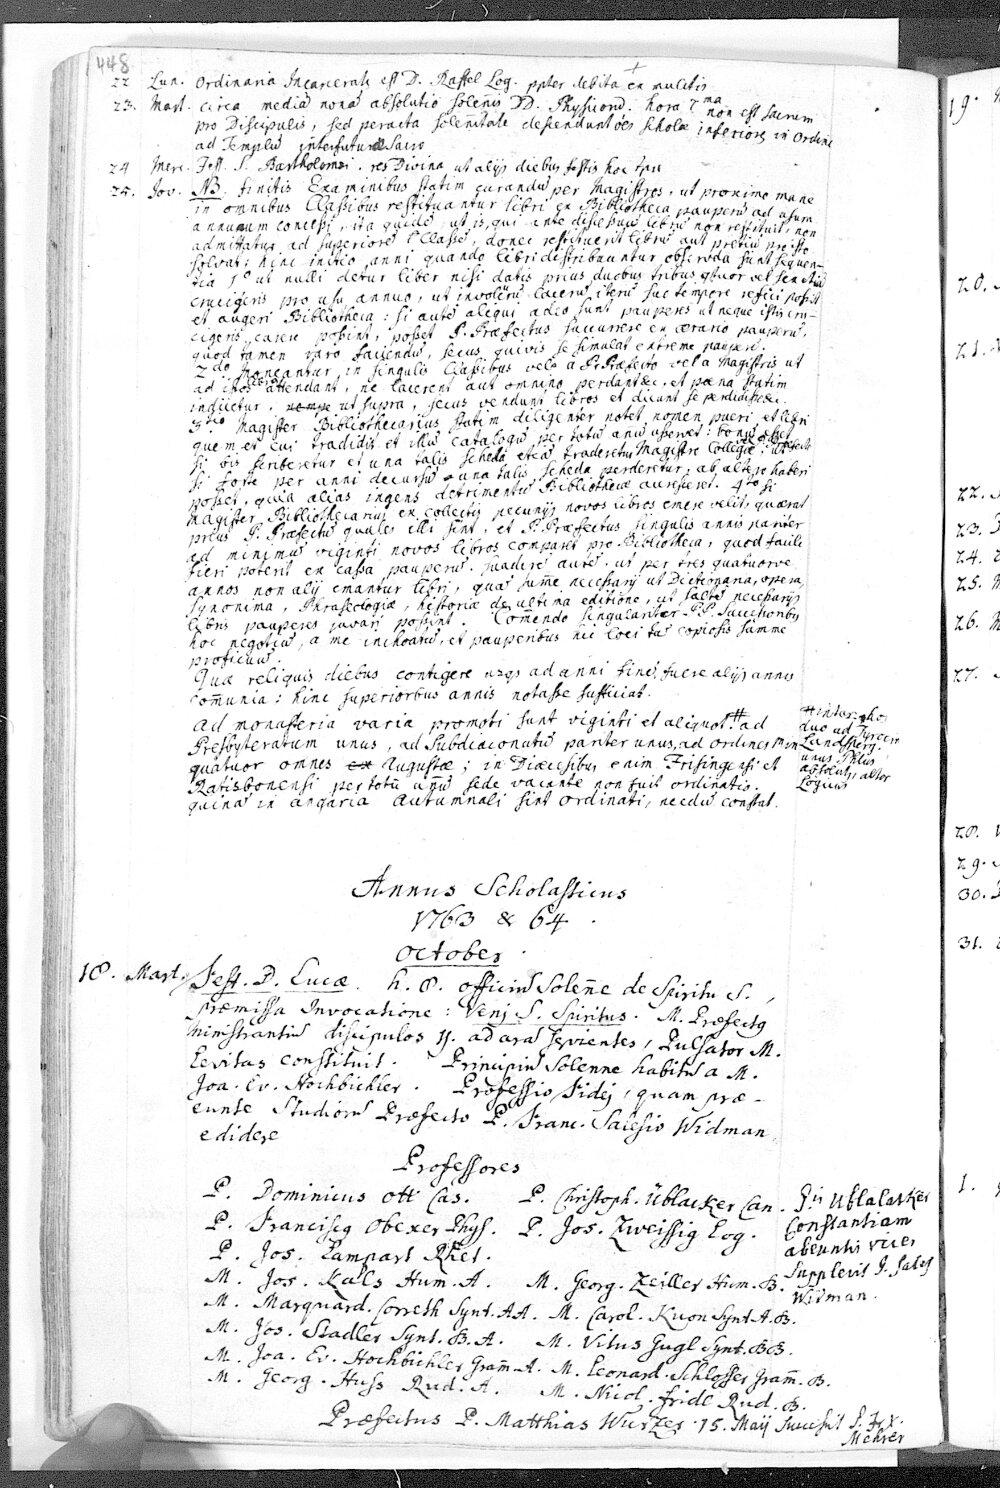 448
22 Lun. Ordinaria Incarcerat9 est D. Rassel Log. ppter debita ex mulctis
23. Mart. circa mediã nonã absolutio solenis DD. Physicorũ. hora 7ma non est sacrum
pro Discipulis, sed peracta solenitate descendunt oes scholæ inferiores in Ordine
ad Templũ interfuturæ Sacro
24 Merc. Fest. S. Bartholomæi. res Divina ut alijs diebus festis hoc tpre
25. Jov. NB. finitis Examinibus statim curandũ per Magistros, ut proximo mane
in omnibus Classibus restituantur libri ex Bibliotheca pauperũ ad usum
annuum concessi, ita quidẽ, ut is, qui ante discessũ librũ non restituit, non
admittatur ad superiorẽ Classẽ, donec restituerit librũ aut pretiũ pro isto
solvat: hinc initio anni quando libri distribuuntur observãda sunt sequen-
tia 1o ut nulli detur liber nisi datis prius duobus tribus quatuor vel sex etiã
crucigeris pro usu annuo, ut involucrũ lacerũ iterũ suo tempore refici possit
et augeri Bibliotheca: si autẽ aliqui adeo sunt pauperes ut neque istis cru-
cigeris carere possint, posset P. Præfectus succurrere ex ærario pauperũ,
quod tamen raro faciendũ, secus quivis se simulat extreme pauperẽ.
2do moneantur in singulis Classibus vel a P. Præfecto vel a Magistris ut
ad libros attendant, ne lacerent aut omnino perdant &c. et pœna statim
indicetur, nempe ut supra, secus vendunt libros et dicunt se perdidisse &c.
3tio Magister Bibliothecarius statim diligenter notet nomen pueri et libri
quem et cui tradidit et illũ catalogũ per totũ anũ asservet: bonũ esset
si bis scriberetur et una talis scheda etiã traderetur Magistro Collegæ
si forte per anni decursũ una talis scheda perderetur, ab altero haberi
posset, quia alias ingens detrimentũ Bibliothecæ accresceret. 4to si
Magister Bibliothecarius ex collectis pecunijs novos libros emere velit, quærat
prius P. Præfectũ quales illi sint, et P. Præfectus singulis annis pariter
ad minimũ viginti novos libros comparet pro Bibliotheca, quod facile
fieri poterit ex cassa pauperũ. suadere autẽ, ut per tres quatuorve
annos non alij emantur libri, quã sume necessarij ut Dictionaria, opera,
synonima, Phraseologiæ, historiæ de ultima editione, ut saltẽ necessarijs
libris pauperes juvari possint. Comendo singulariter P.P. Successoribus
hoc negotiũ, a me inchoatũ, et pauperibus hic loci tã copiosis summe
proficuũ.
Quæ reliquis diebus contigere usq3 ad anni finẽ, fuere alijs annis
comunia: hinc superioribus annis notasse sufficiat.
Ad monasteria varia promoti sunt viginti et aliquot # ad
Presbyteratum unus, ad Subdiaconatũ pariter unus, ad ordines min
quatuor omnes ex Augustæ; in Diœcesibus enim Frisingensi et
Ratisbonensi per totũ anũ sede vacante non fuit ordinatio.
qui nã in angaria Autumnali sint ordinati, necdũ constat.
# inter hos
duo ad Tyrocin
Landsperg.
unus Phlus
absolut9, alter
Logicus
Annus Scholasticus
1763 & 64.
October.
18. Mart. Fest. D. Lucæ. h. 8. officiũ Solene de Spiritu S.,
præmissa Invocatione: Veni S. Spiritus. M. Præfect9
ministrantiũ discipulos 4. ad arã servientes, Pulsator M.
Levitas constituit. Principiũ Solenne habitũ a M.
Joa. Ev. Hochbichler. Professio Fidei, quam præ-
eunte Studiorũ Præfecto P. Franc. Salesio Widman
edidere
Professores
P. Dominicus Ott Cas. P. Christoph. Üblacker Can.
P. Francisc9 Obexer Phys. P. Jos. Zweissig Log.
P. Jos. Lampart Rhet.
M. Jos. Kals Hum. A. M. Georg. Zeiller Hum. B.
M. Marquard. Correth Synt. A A. M. Carol. Kuon Synt. A. B.
M. Jos. Stadler Synt. B. A. M. Vitus Gugl Synt. B B.
M. Joa. Ev. Hochbichler Gram. A. M. Leonard. Schlosser Gram. B.
M. Georg. Huss Rud. A. M. Nicol. Fridl Rud. B.
Præfectus P. Matthias Wurzer. 15. Maij successit P. Fr. X.
Mehrer
Pis Ublalacker
Constantiam
abeuntis vices
supplevit P. Sales
Widman.
19.
20.
21.
22.
23.
24.
25.
26.
27.
28.
29.
30.
31.
1.